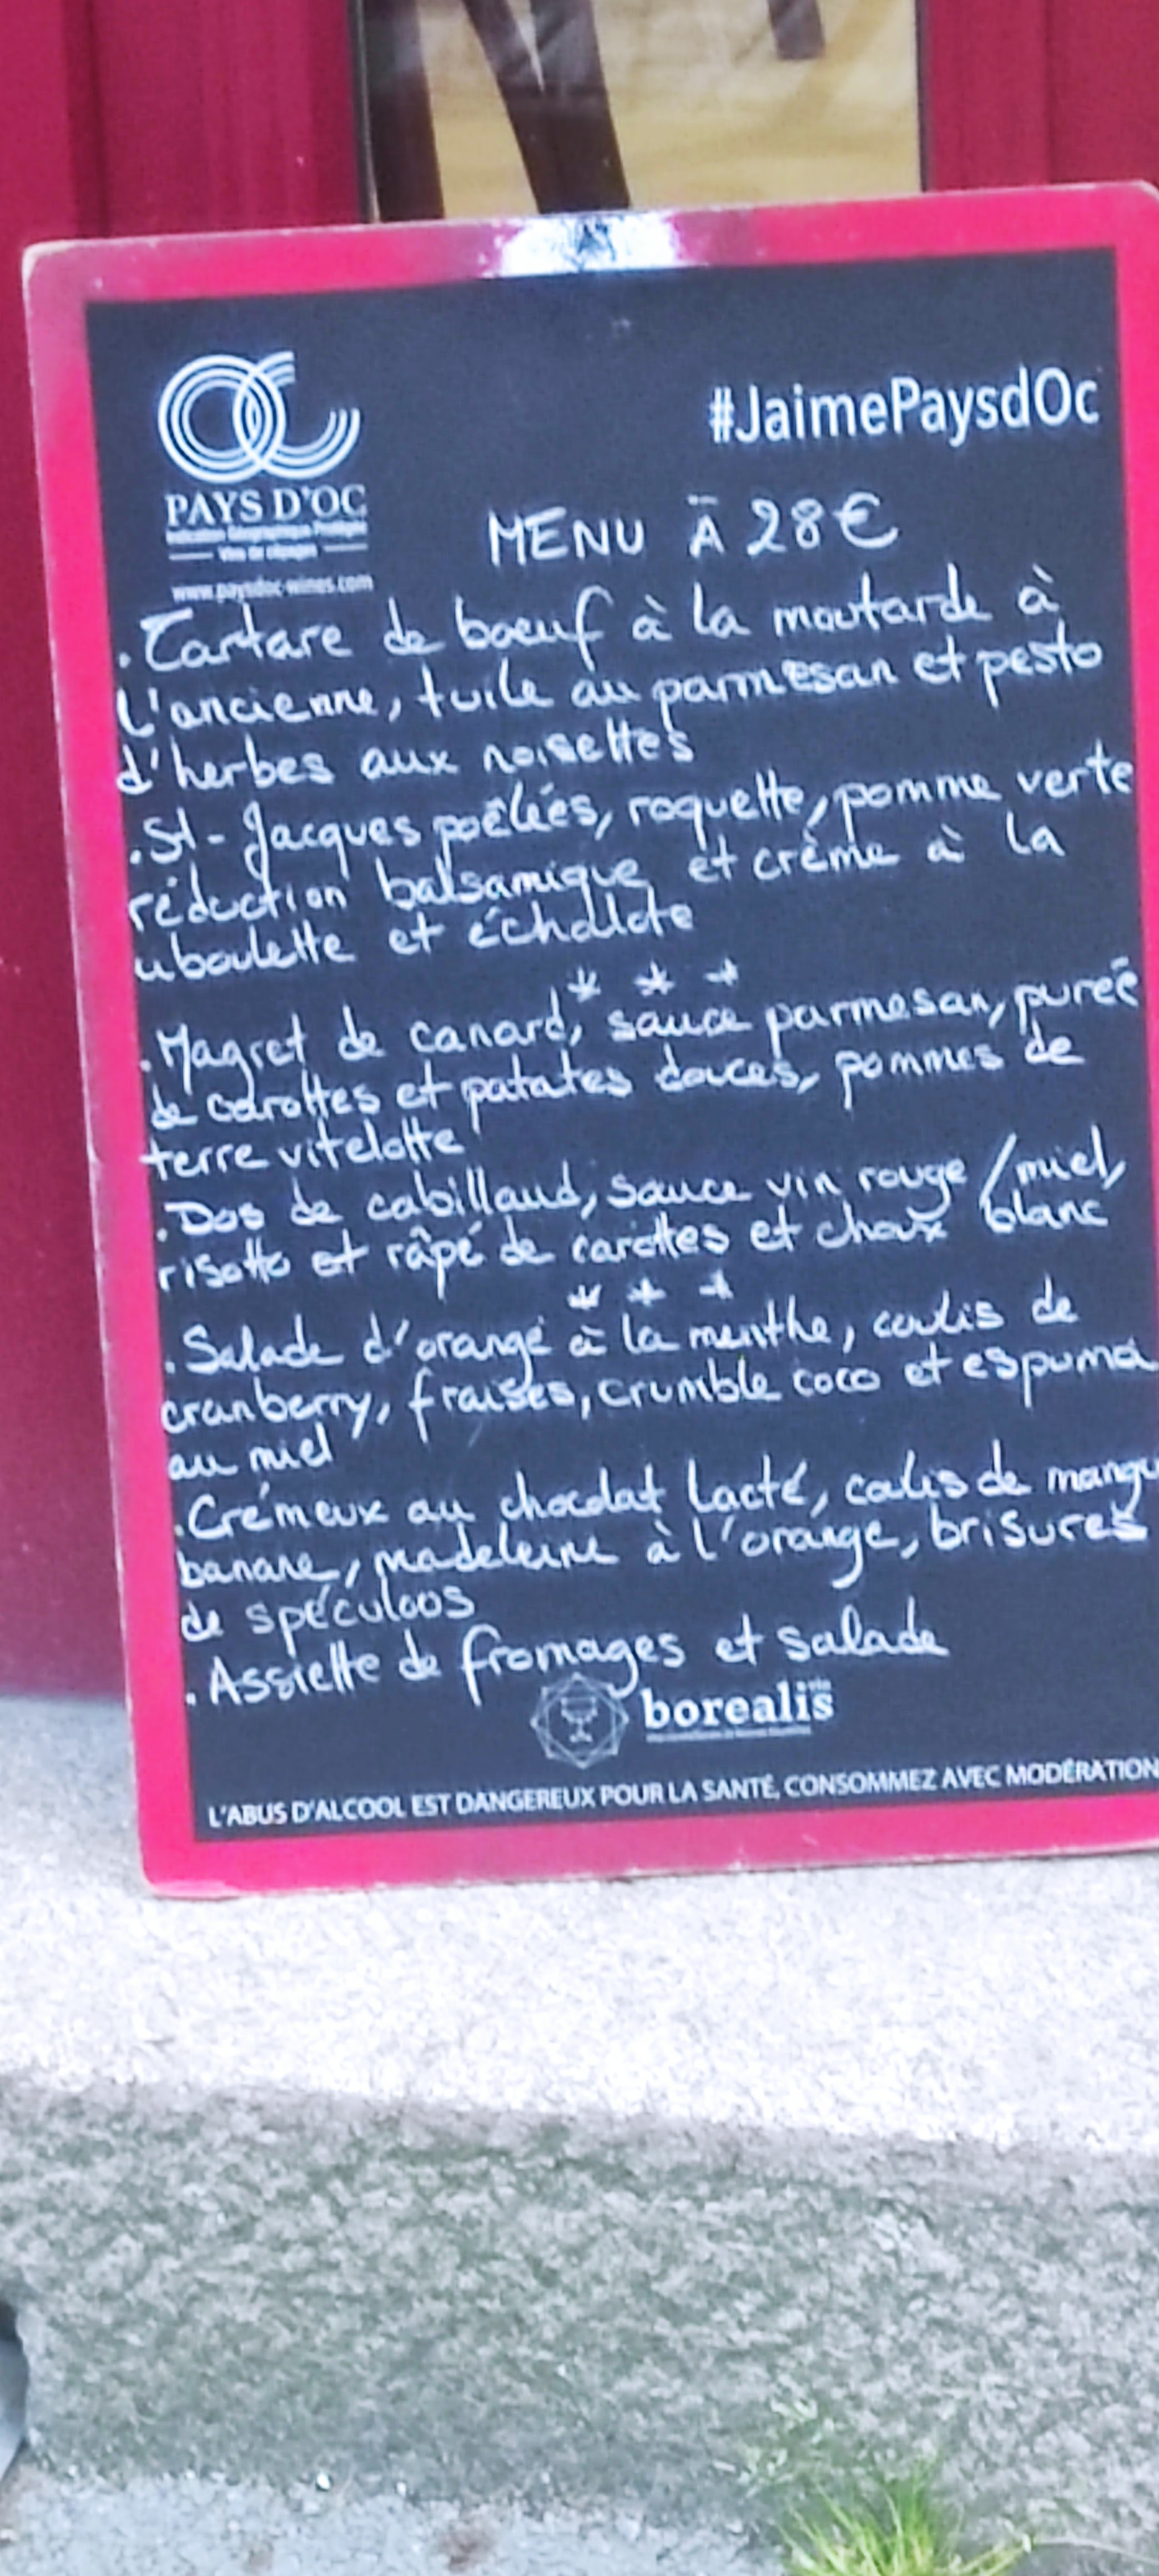 #JaimePaysdOc
PAYS D'OC
Indication Géographique Protégée
Vins de cépages
www.paysdoc-wines.com
MENU À 28€
. Tartare de boeuf à la moutarde à
l'ancienne, tuile au parmesan et pesto
d'herbes aux noisettes
. St-Jacques poêlées, roquette, pomme verte
réduction balsamique et crème à la
ciboulette et échalote
* * *
. Magret de canard, sauce parmesan, purée
de carottes et patates douces, pommes de
terre vitelotte
. Dos de cabillaud, sauce vin rouge / miel,
risotto et râpé de carottes et choux blanc
* * *
. Salade d'orange à la menthe, coulis de
cranberry, fraises, crumble coco et espuma
au miel
. Crémeux au chocolat lacté, coulis de mangu
banane, madeleine à l'orange, brisures
de spéculoos
. Assiette de fromages et salade
borealis
L'ABUS D'ALCOOL EST DANGEREUX POUR LA SANTÉ, CONSOMMEZ AVEC MODÉRATION